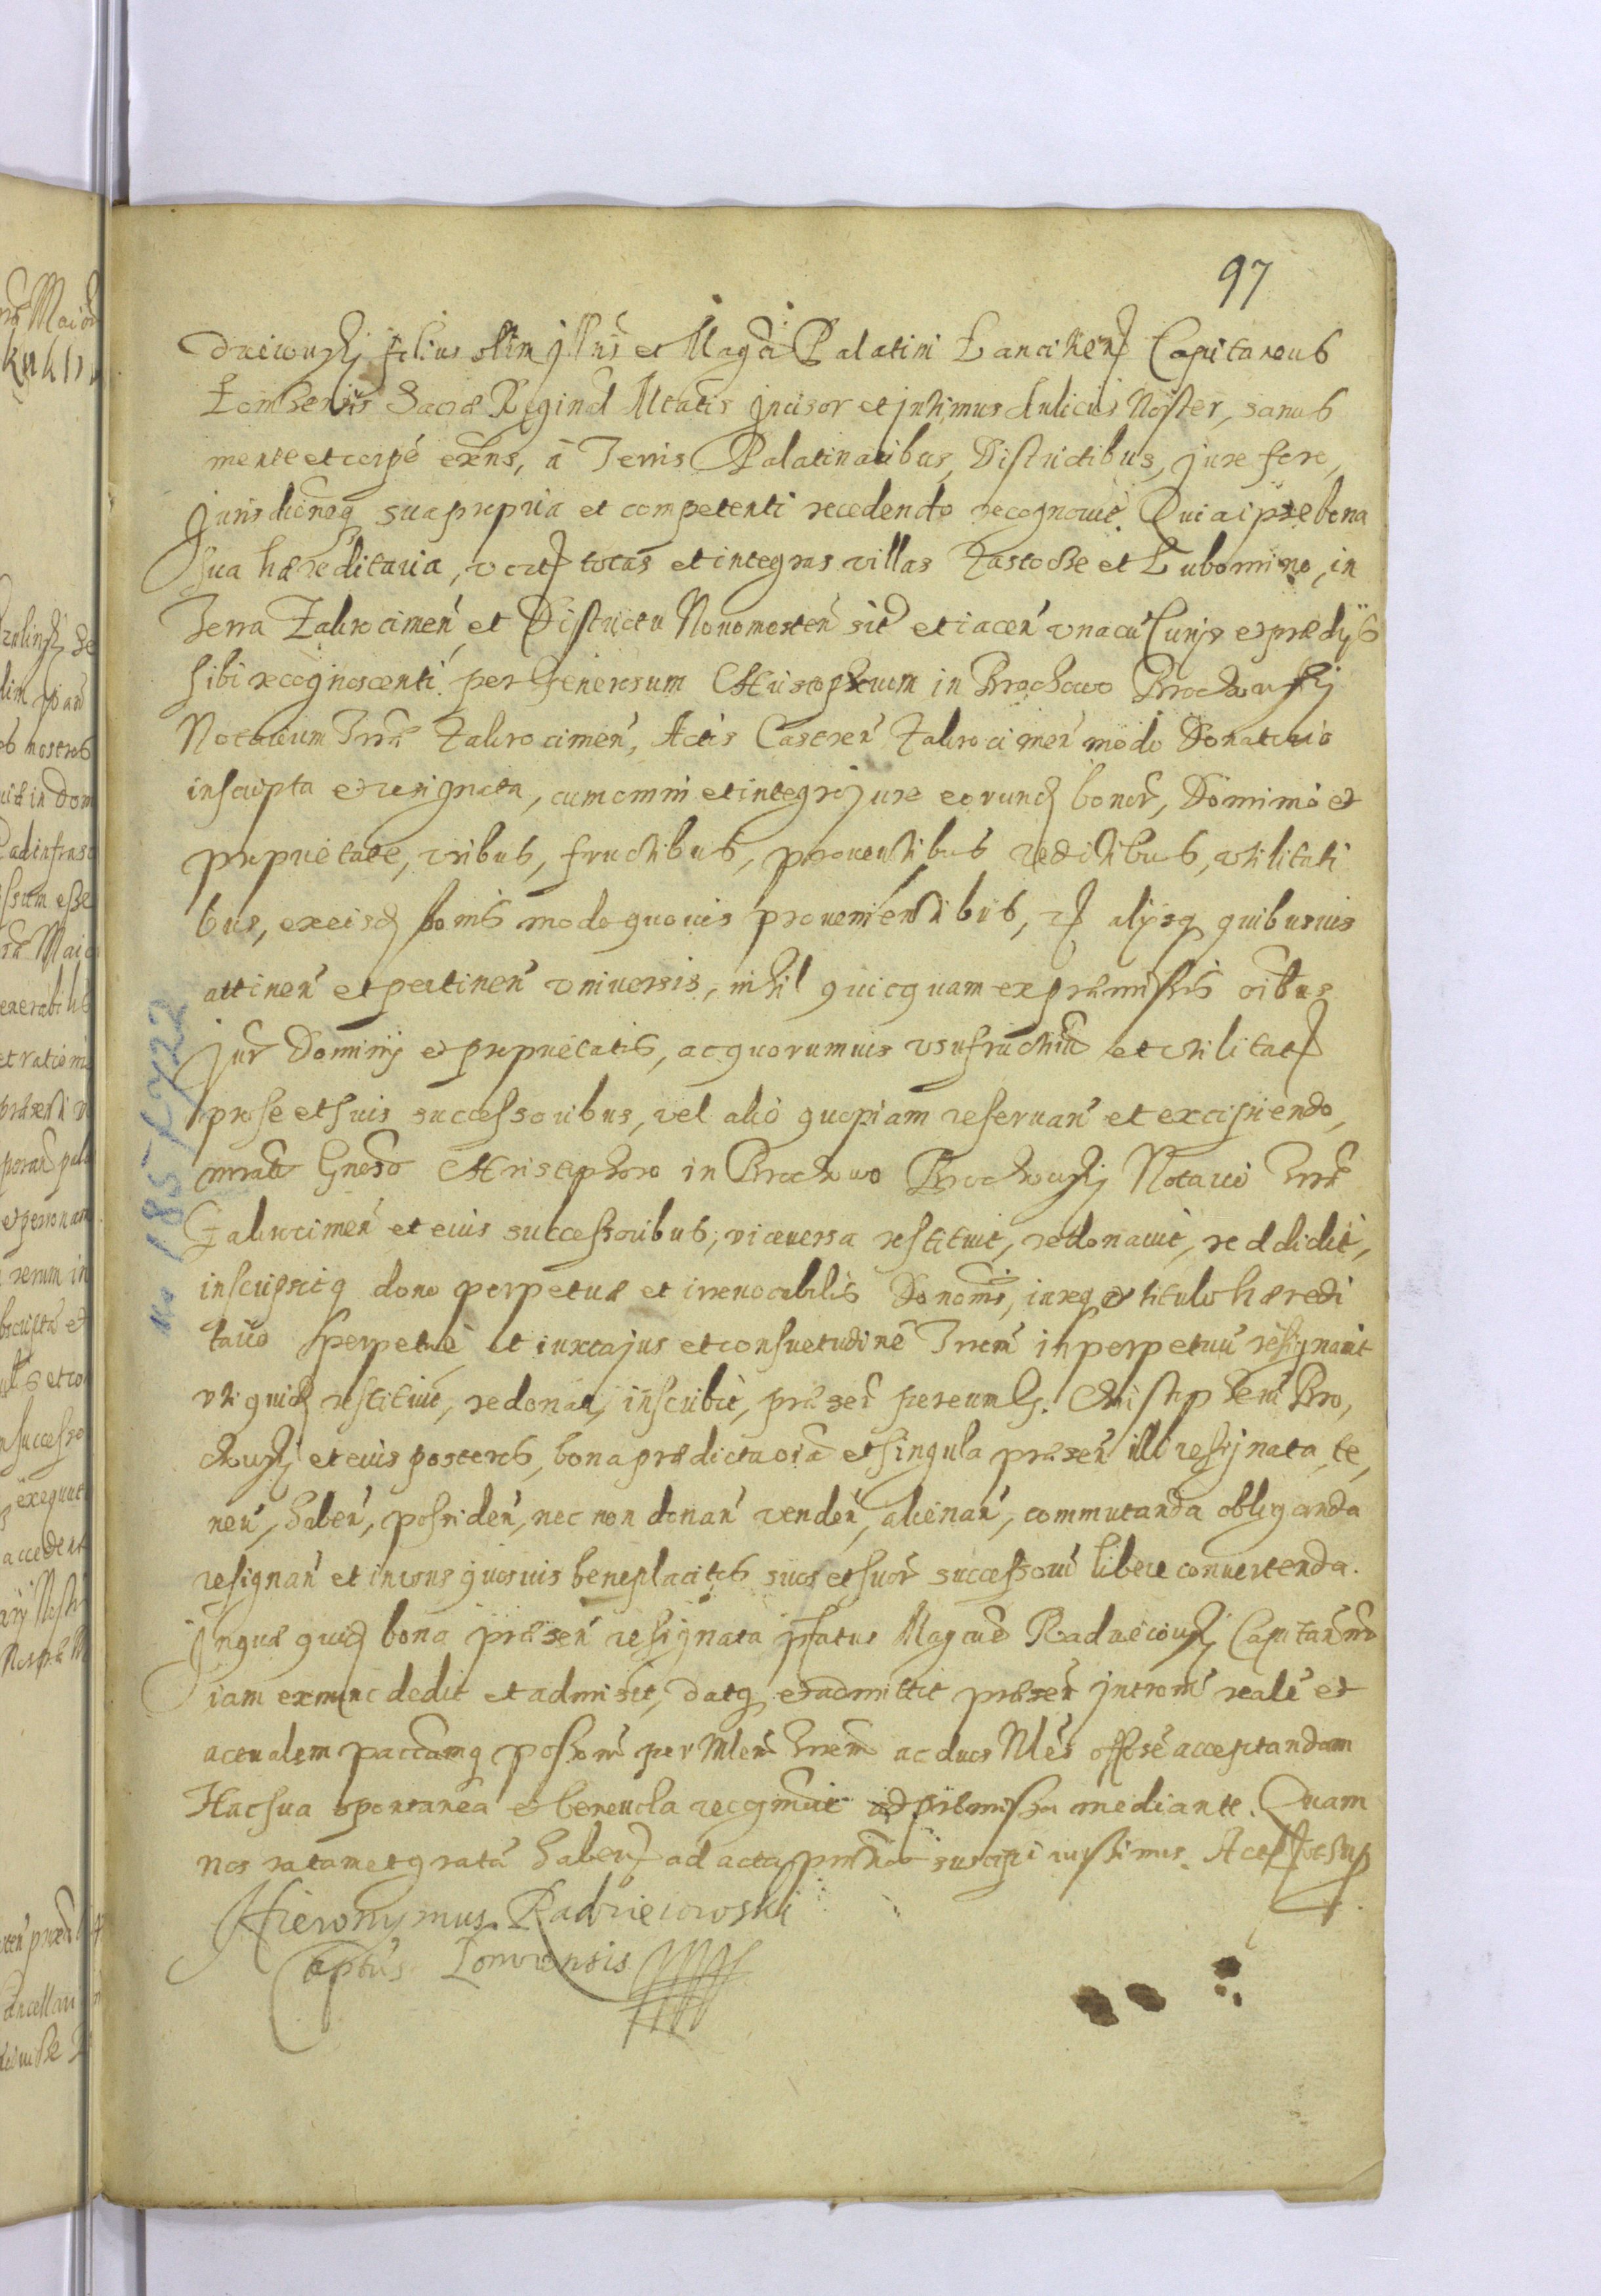 97
dzieiowskj filius olim Jllris et Magci Palatini Lanciksis Capitaneus
Lomzensis Sacræ Reginal Mtatis Jncisor et jntimus Aulicus Noster, sanus
mente et corpe exns, à Terris Palatinatibus, Districtibus, jure fore,
jurisdicneq sua propria et competenti recedendo recognovit. Quia ipse bona
sua hæreditaria, vtzt totas et integras villas Zastocze et Lubomino, in
Terra Zakrocimen, et Districtu Nouomosten sit et iacen vnacu Curijs et prædijs
sibi recognoscenti per Generosum Christophorum in Brochowo Brochowskj
Notarium Trræ Zakrocimen, Actis Castren Zakrocimen modo Donatorio
inscripta et resignata, cum omni et integro jure eorund bonor, Dominio et
proprietate, vsibus, fructibus, prouentibus reditibus, vtilitati
bus, ex eisd bonis modo quouis prouenientibus, alijsq quibusuis
attinen et pertinen vniuersis, nihil quicquam ex præmissis oibus
jur Dominij et proprietatis, ac quorumuis vsufructuu et vtilitat
pro se et suis successoribus, vel alio quopiam reseruan et excipiendo,
mrato Gnoso Christophoro in Brochowo Brochowskj Notario Trræ
Zakrocimen et eius successoribus, viceuersa restituit, redonauit, reddidit,
inscripsitq dono perpetuæ et irreuocabilis Dononis, iureq et titulo hæredi
tario perpetue et iuxta jus et consuetudine Trrem in perpetuu resignauit
vti quid restituit, redonat, inscribit, præsen per eum G. Christophoru Bro,
chowskj et eius posteros, bona prædicta oia et singula præsen illi resignata, te,
nen, haben, possiden, nec non donan venden, alienan, commutanda obliganda
resignan et in vsus quosuis beneplacitos suos et suor successoru libere conuertenda.
Jn quæ quid bona præsen resignata pfatus Magcus Radzieiowskj Capitaneus
iam ex nunc dedit et admisit, datq et admittit præsen jntrom reale et
actualem paccamq possom per Mlem Trrem ac duos Nles offose acceptandam
Hac sua spontanea et beneuola recognne ad præmissa mediante. Quam
nos ratam et grata haben ad acta præn suscipi iussimus. Act
Hieronymus Radzieiowski
Captus Lomzensis
No 185 f 722